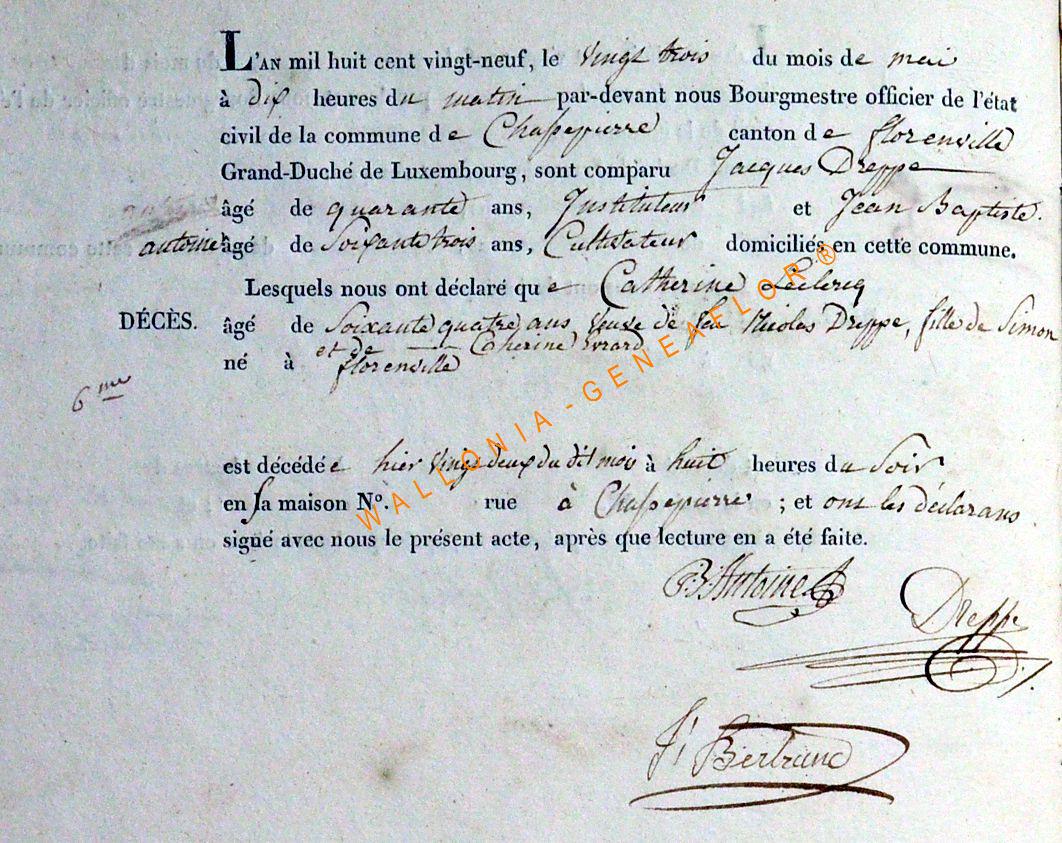 L'AN mil huit cent vingt-neuf, le vingt trois du mois de mai
à dix heures du matin par-devant nous Bourgmestre officier de l'état
civil de la commune de Chassepierre canton de florenville
Grand-Duché de Luxembourg, sont comparu Jacques Dreppe
âgé de quarante ans, Instituteur et Jean Baptiste
antoine âgé de Soixante trois ans, Cultivateur domiciliés en cette commune.
Lesquels nous ont déclaré que Catherine Leclercq
DÉCÈS. âgé de Soixante quatre ans veuve de feu Nicolas Dreppe, fille de Simon
et de Catherine Evrard
né à florenville
6me
est décédée hier vingt deux du dit mois à huit heures du Soir
en sa maison No. rue à Chassepierre ; et ont les déclarans
signé avec nous le présent acte, après que lecture en a été faite.
B. Antoine
Dreppe
Bertrand
WALLONIA - GENEAFLOR ®